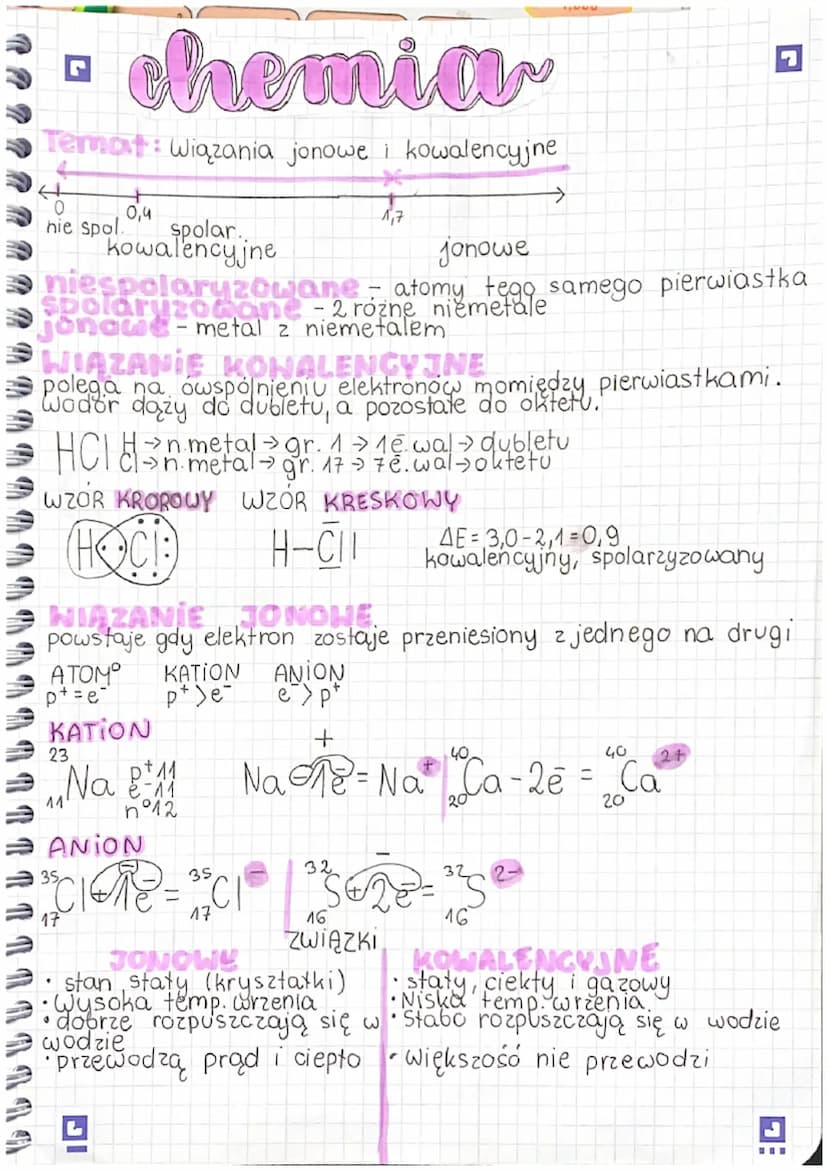 chemia
Temat: Wiązania jonowe i kowalencyjne
0 0,4 1,7
nie spol. spolar.
kowalencyjne jonowe
niespolaryzowane - atomy tego samego pierwiastka
spolaryzowane - 2 różne niemetale
jonowe - metal z niemetalem
WIĄZANIE KOWALENCYJNE
polega na uwspólnieniu elektronów momiędzy pierwiastkami.
Wodór dąży do dubletu, a pozostałe do oktetu.
HCl H → n.metal → gr. 1 → 1ē.wal → dubletu
Cl → n.metal → gr. 17 → 7ē.wal → oktetu
WZÓR KROPOWY WZÓR KRESKOWY
H Cl H-Cl| ΔE = 3,0-2,1=0,9
kowalencyjny, spolarzyzowany
WIĄZANIE JONOWE
powstaje gdy elektron zostaje przeniesiony z jednego na drugi
ATOM⁰ KATION ANION
p⁺=e⁻ p⁺>e⁻ e⁻>p⁺
KATION
²³₁₁Na p⁺11 e⁻11 n⁰12
+
Na-1ē = Na⁺ | ⁴⁰₂₀Ca-2ē = ⁴⁰₂₀Ca²⁺
ANION
³⁵₁₇Cl+1ē = ³⁵₁₇Cl⁻ | ³²₁₆S+2ē = ³²₁₆S²⁻
ZWIĄZKI
JONOWE
• stan stały (kryształki)
• Wysoka temp. wrzenia
• dobrze rozpuszczają się w
wodzie
• przewodzą prąd i ciepło
KOWALENCYJNE
• stały, ciekły i gazowy
• Niska temp. wrzenia
• Słabo rozpuszczają się w wodzie
• większość nie przewodzi